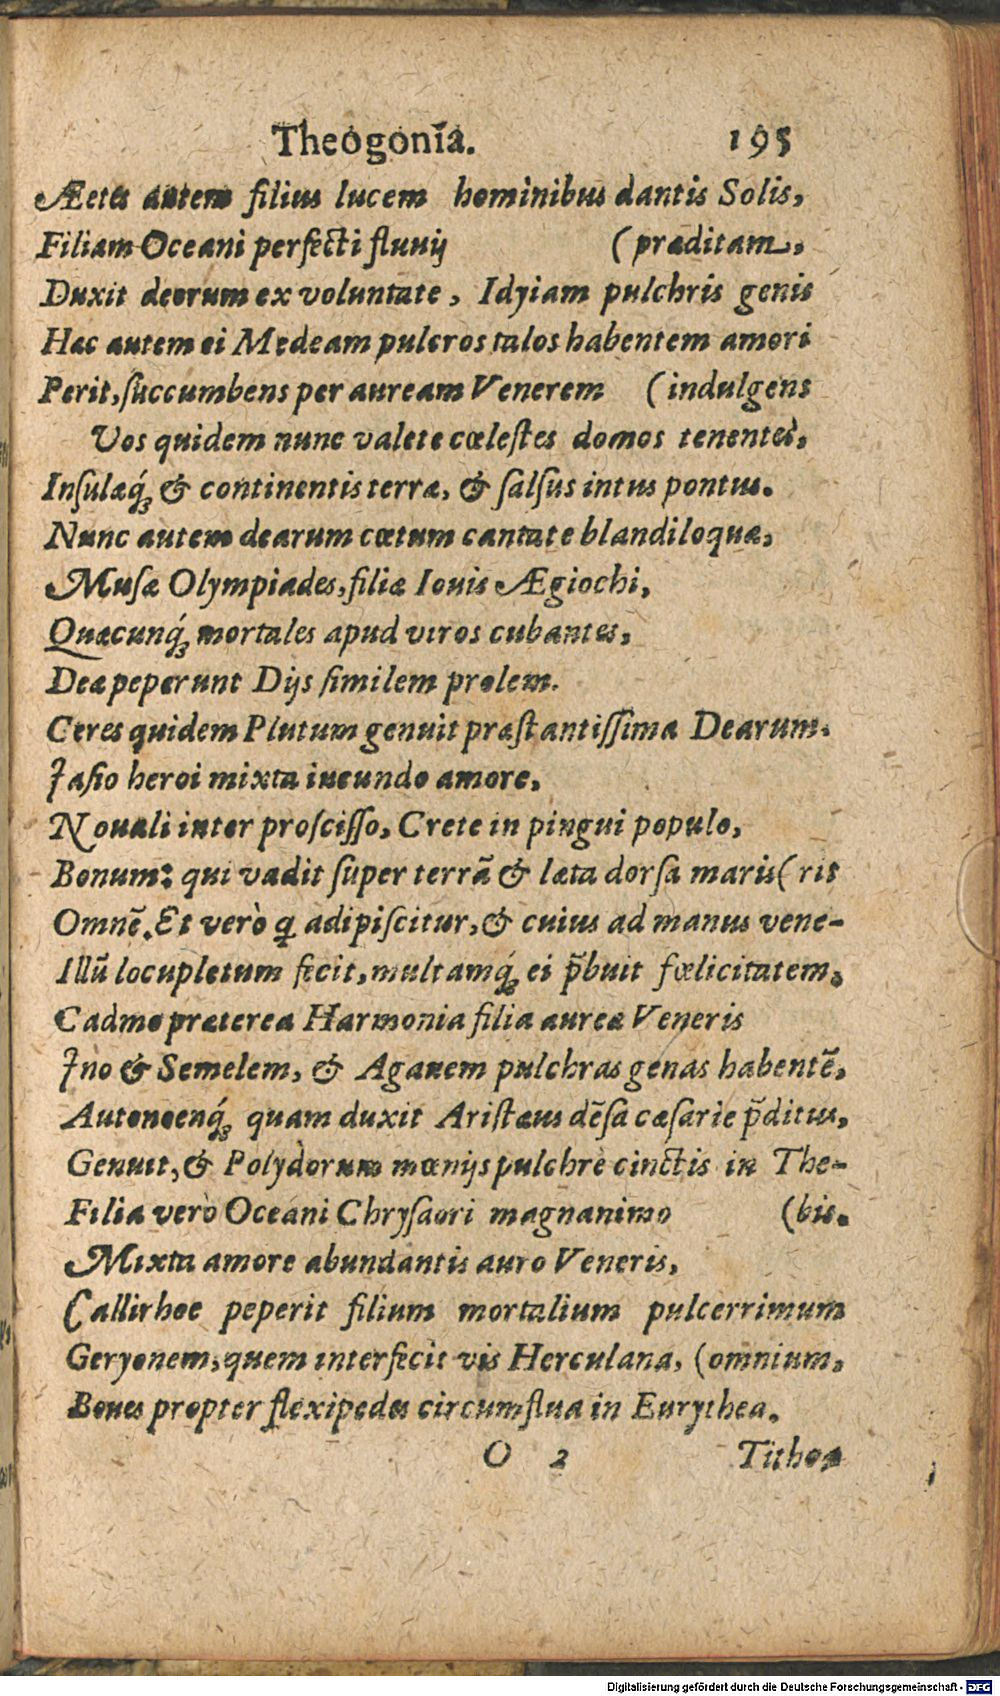 Theogonia. 195
Æetes autem filius lucem hominibus dantis Solis,
Filiam Oceani perfecti fluuij (præditam,
Duxit deorum ex voluntate, Idyiam pulchris genis
Hæc autem ei Medeam pulcros talos habentem amori
Perit, succumbens per auream Venerem (indulgens
Vos quidem nunc valete cœlestes domos tenentes,
Insulæq́; & continentis terræ, & salsus intus pontus.
Nunc autem dearum cœtum cantate blandiloquæ,
Musæ Olympiades, filiæ Iouis Ægiochi,
Quæcunq́; mortales apud viros cubantes,
Deæ peperunt Dijs similem prolem.
Ceres quidem Plutum genuit præstantissima Dearum.
Iasio heroi mixta iucundo amore,
Nouali inter proscisso, Crete in pingui populo,
Bonum: qui vadit super terrã & læta dorsa maris (rit
Omnẽ. Et verò q adipiscitur, & cuius ad manus vene-
Illũ locupletum fecit, multamq́; ei p̃buit fœlicitatem.
Cadmo præterea Harmonia filia aureæ Veneris
Ino & Semelem, & Agauem pulchras genas habentẽ,
Autonoenq́; quam duxit Aristæus dẽsa cæsarie p̃ditus,
Genuit, & Polydorum mœnijs pulchrè cinctis in The-
Filia verò Oceani Chrysaori magnanimo (bis.
Mixta amore abundantis auro Veneris,
Callirhoe peperit filium mortalium pulcerrimum
Geryonem, quem interfecit vis Herculana, (omnium,
Boues propter flexipedes circumflua in Eurythea.
O 2 Titho-
Digitalisierung gefördert durch die Deutsche Forschungsgemeinschaft - DFG